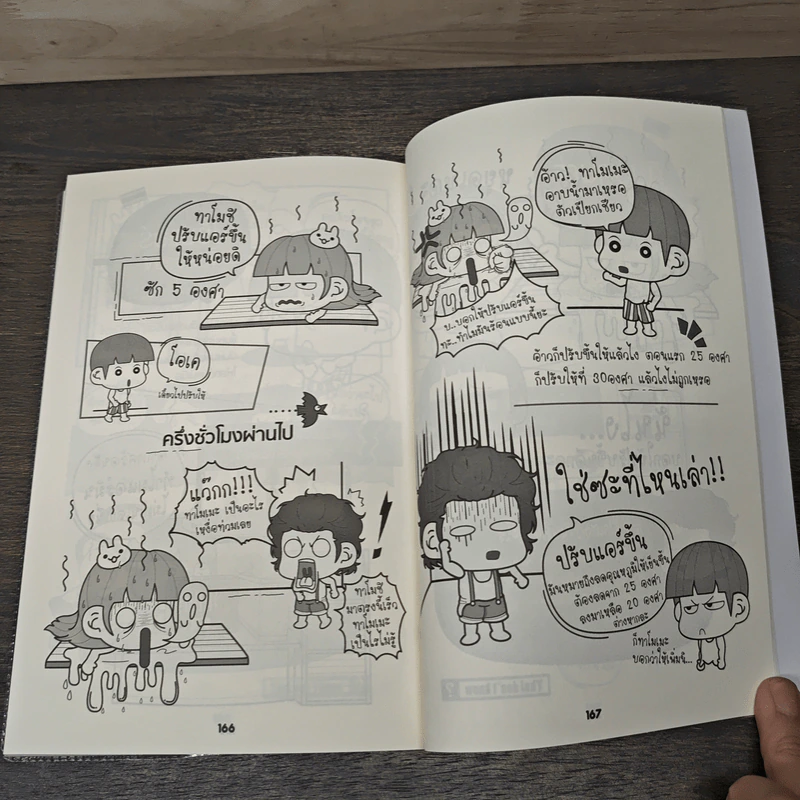 ทาโมซี
ปรับแอร์ขึ้น
ให้หน่อยดิ
ซัก 5 องศา
โอเค
เดี๋ยวไปปรับให้
ครึ่งชั่วโมงผ่านไป
แว๊กก!!!
ทาโมเมะ เป็นอะไร
เหงื่อท่วมเลย
ทาโมซี
มาตรงนี้เร็ว
ทาโมเมะ
เป็นไรไม่รู้
166
อ้าว! ทาโมเมะ
อาบน้ำมาเหรอ
ตัวเปียกเชียว
บ..บอกให้ปรับแอร์ขึ้น
ทะ..ทำไมมันร้อนแบบนี้ยะ
อ้าวก็ปรับขึ้นให้แล้วไง ตอนแรก 25 องศา
ก็ปรับให้ที่ 30องศา แล้วไงไม่ถูกเหรอ
ใช่ซะที่ไหนเล่า!!
ปรับแอร์ขึ้น
มันหมายถึงลดอุณหภูมิให้เย็นขึ้น
ต้องลดจาก 25 องศา
ลงมาเหลือ 20 องศา
ต่างหากละ
ก็ทาโมเมะ
บอกว่าให้เพิ่มนิ...
167